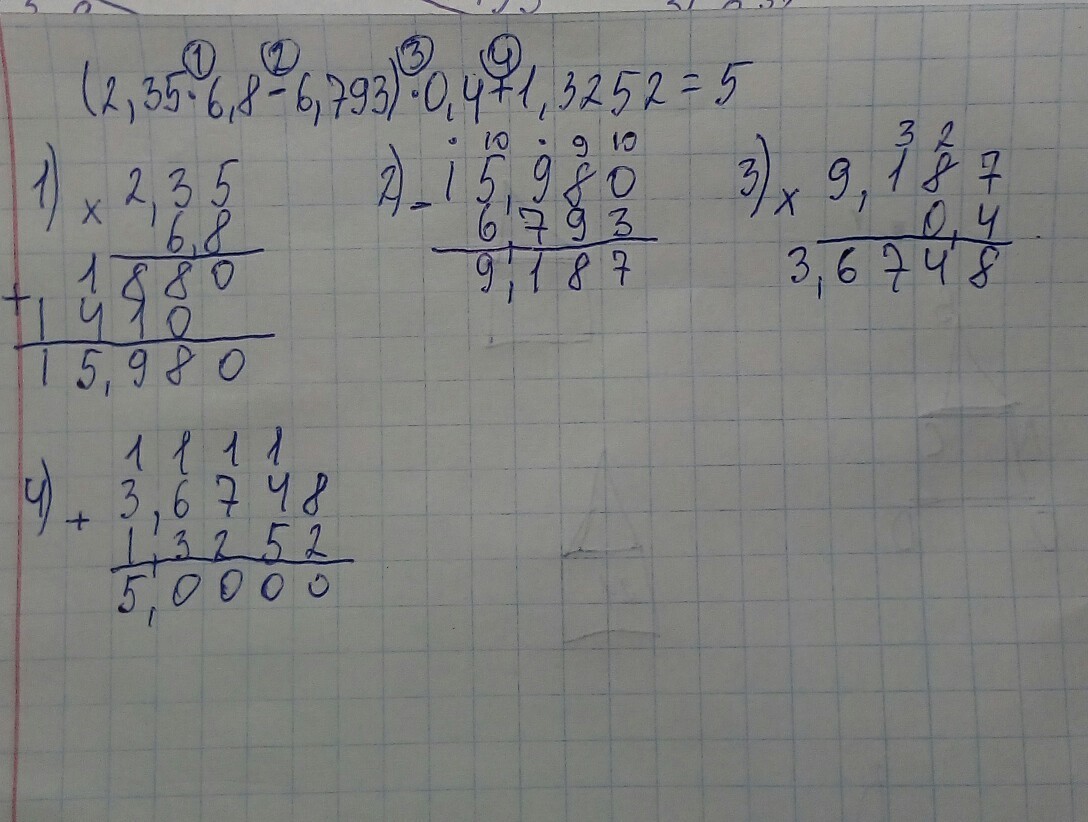 ① ② ③ ④
(2,35·6,8-6,793)·0,4+1,3252=5
1) × 2,35
6,8
1880
+ 1410
15,980
· 10 · 9 10
2) - 15,980
6,793
9,187
3 2
3) × 9,187
0,4
3,6748
1 1 1 1
4) + 3,6748
1,3252
5,0000